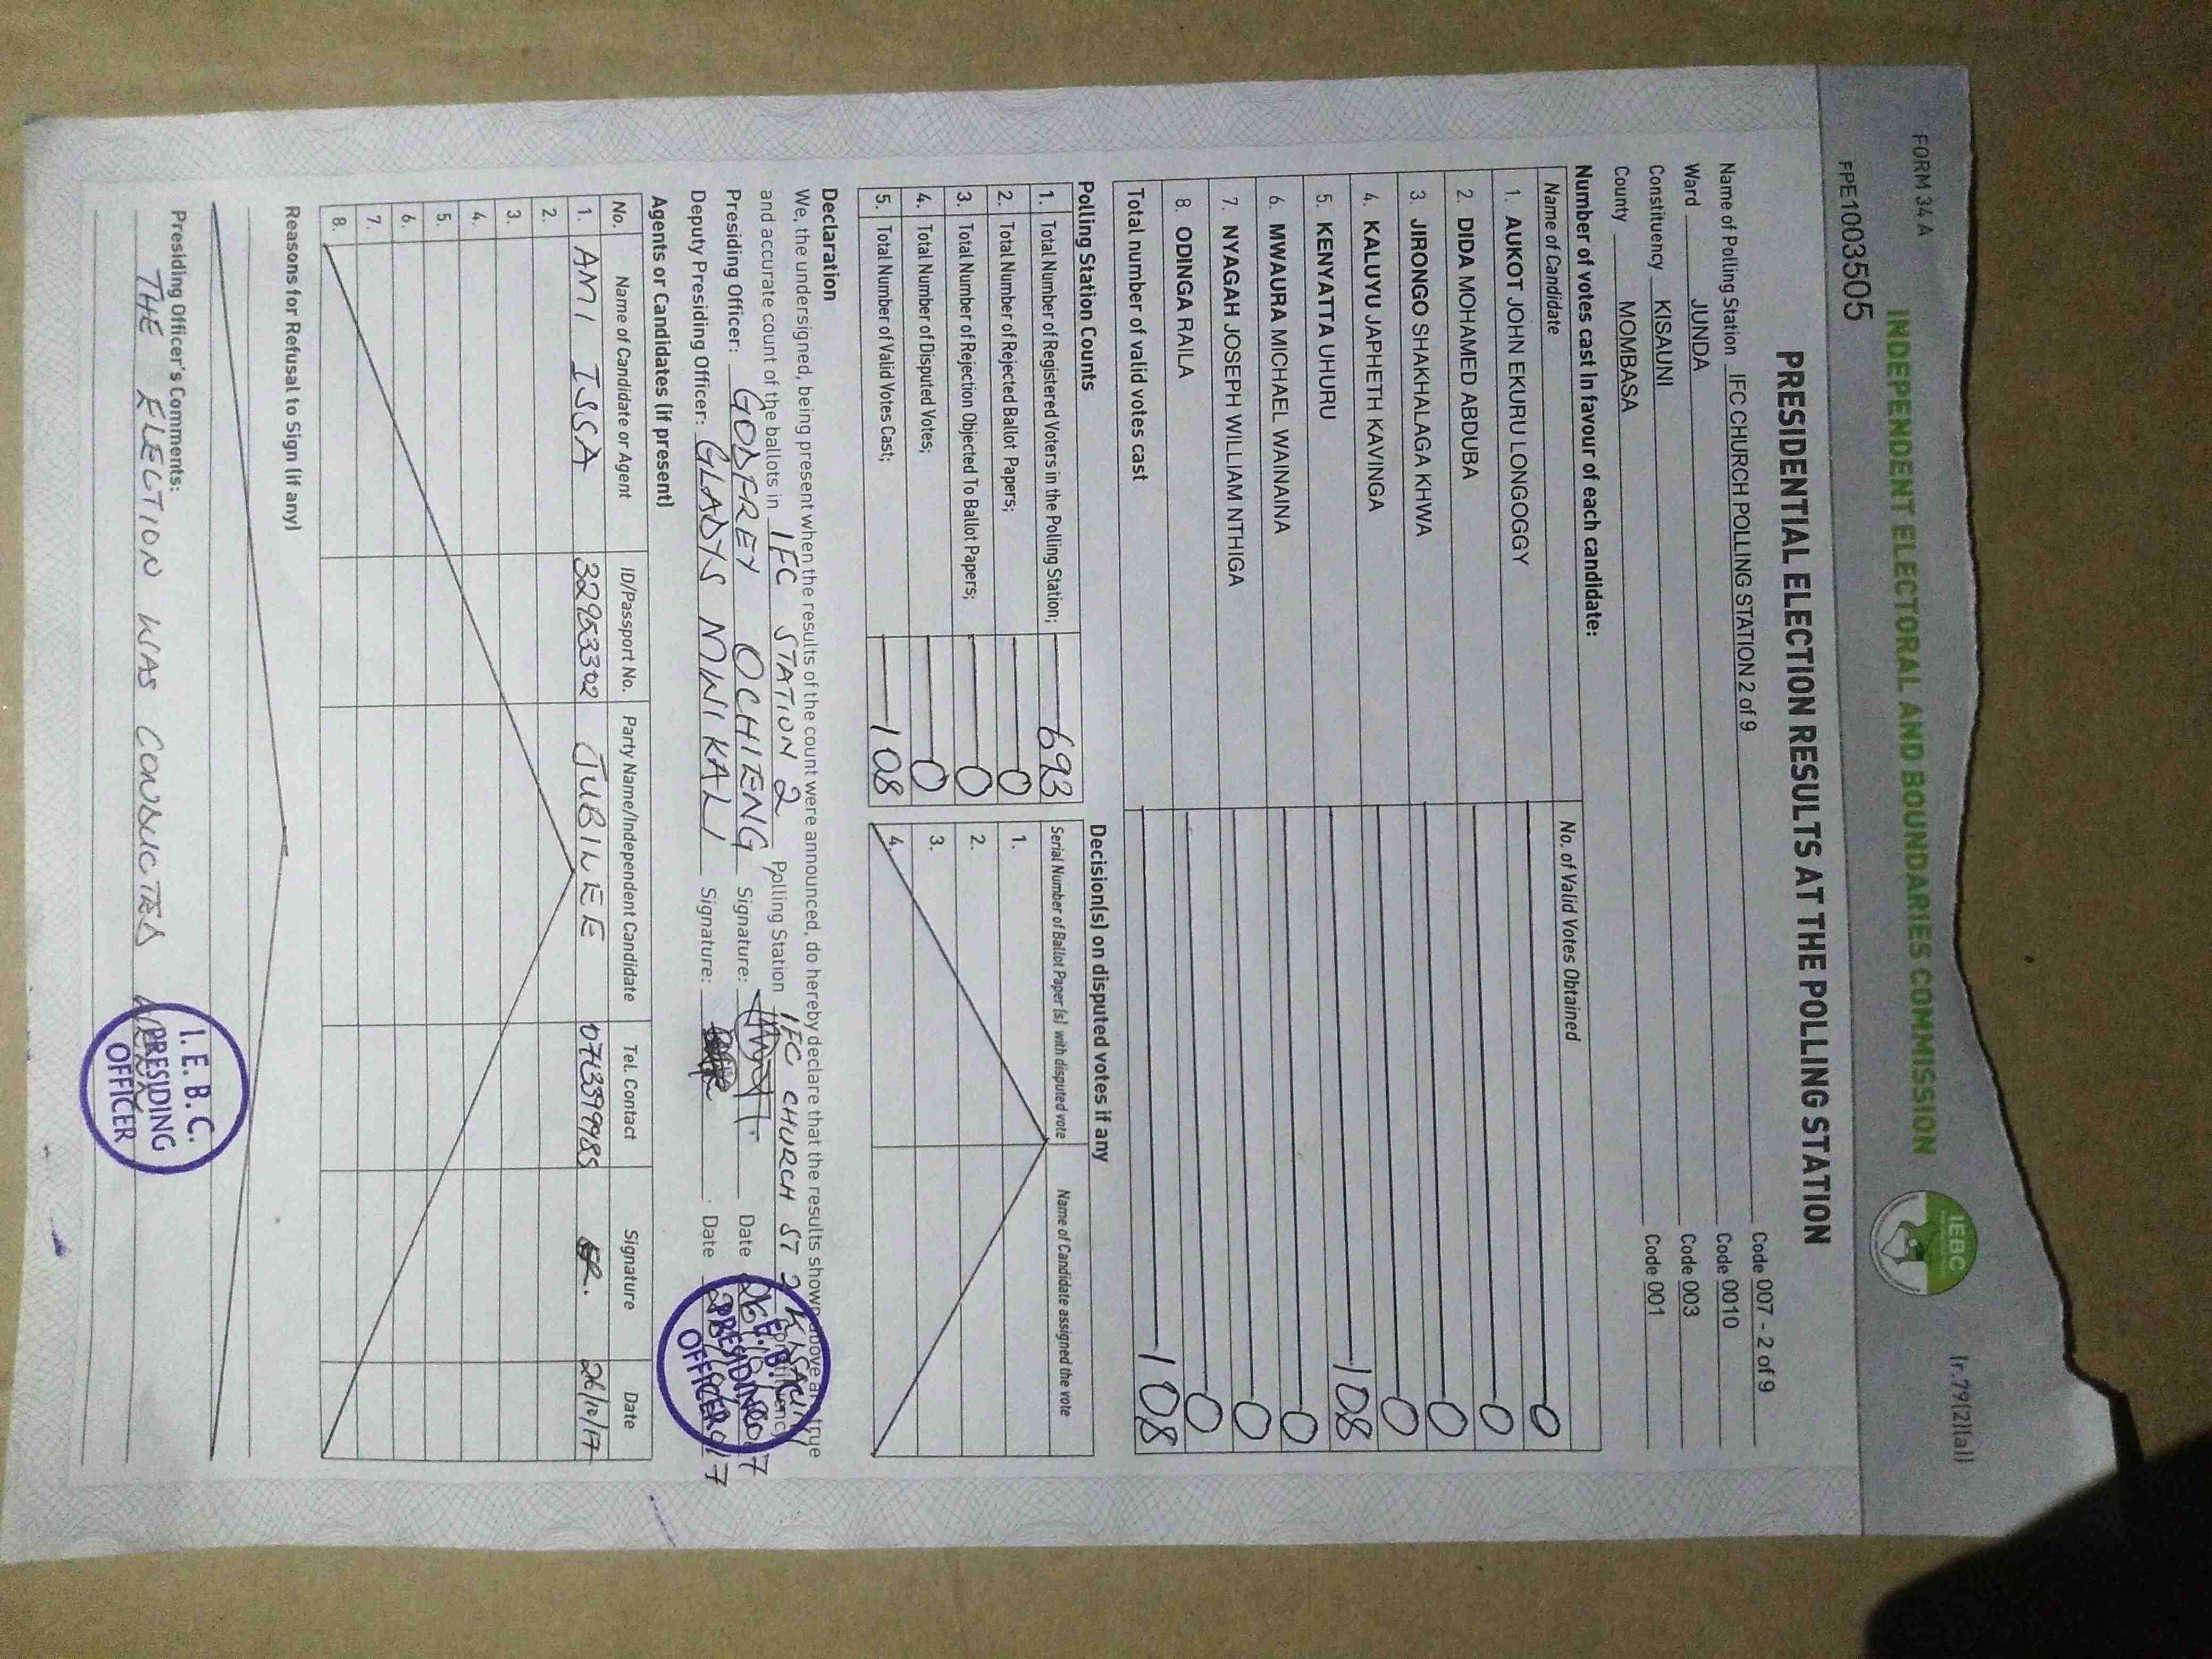 FORM 34 A
INDEPENDENT ELECTORAL AND BOUNDARIES COMMISSION
IEBC
(r.79(2)(a))
FPE1003505
PRESIDENTIAL ELECTION RESULTS AT THE POLLING STATION
Name of Polling Station IFC CHURCH POLLING STATION 2 of 9 Code 007 - 2 of 9
Ward JUNDA Code 0010
Constituency KISAUNI Code 003
County MOMBASA Code 001
Number of votes cast in favour of each candidate:
Name of Candidate No. of Valid Votes Obtained
1. AUKOT JOHN EKURU LONGOGGY 0
2. DIDA MOHAMED ABDUBA 0
3 JIRONGO SHAKHALAGA KHWA 0
4. KALUYU JAPHETH KAVINGA 0
5. KENYATTA UHURU 108
6. MWAURA MICHAEL WAINAINA 0
7. NYAGAH JOSEPH WILLIAM NTHIGA 0
8. ODINGA RAILA 0
Total number of valid votes cast 108
Polling Station Counts
1. Total Number of Registered Voters in the Polling Station; 693
2. Total Number of Rejected Ballot Papers; 0
3. Total Number of Rejection Objected To Ballot Papers; 0
4. Total Number of Disputed Votes; 0
5. Total Number of Valid Votes Cast; 108
Decision(s) on disputed votes if any
Serial Number of Ballot Paper (s) with disputed vote Name of Candidate assigned the vote
1.
2.
3.
4.
Declaration
We, the undersigned, being present when the results of the count were announced, do hereby declare that the results shown above are true
and accurate count of the ballots in IFC STATION 2 Polling Station IFC CHURCH ST 2 KISAUNI Constituency
Presiding Officer: GODFREY OCHIENG Signature: Date 26/10/2017
Deputy Presiding Officer: GLADYS MWIKALI Signature: Date 26/10/2017
I. E. B. C.
PRESIDING
OFFICER
Agents or Candidates (if present)
No. Name of Candidate or Agent ID/Passport No. Party Name/Independent Candidate Tel. Contact Signature Date
1. AMI ISSA 32953302 JUBILEE 0713399985 26/10/17
2.
3.
4.
5.
6.
7.
8.
Reasons for Refusal to Sign (if any)
Presiding Officer's Comments:
THE ELECTION WAS CONDUCTED
I. E. B. C.
PRESIDING
OFFICER